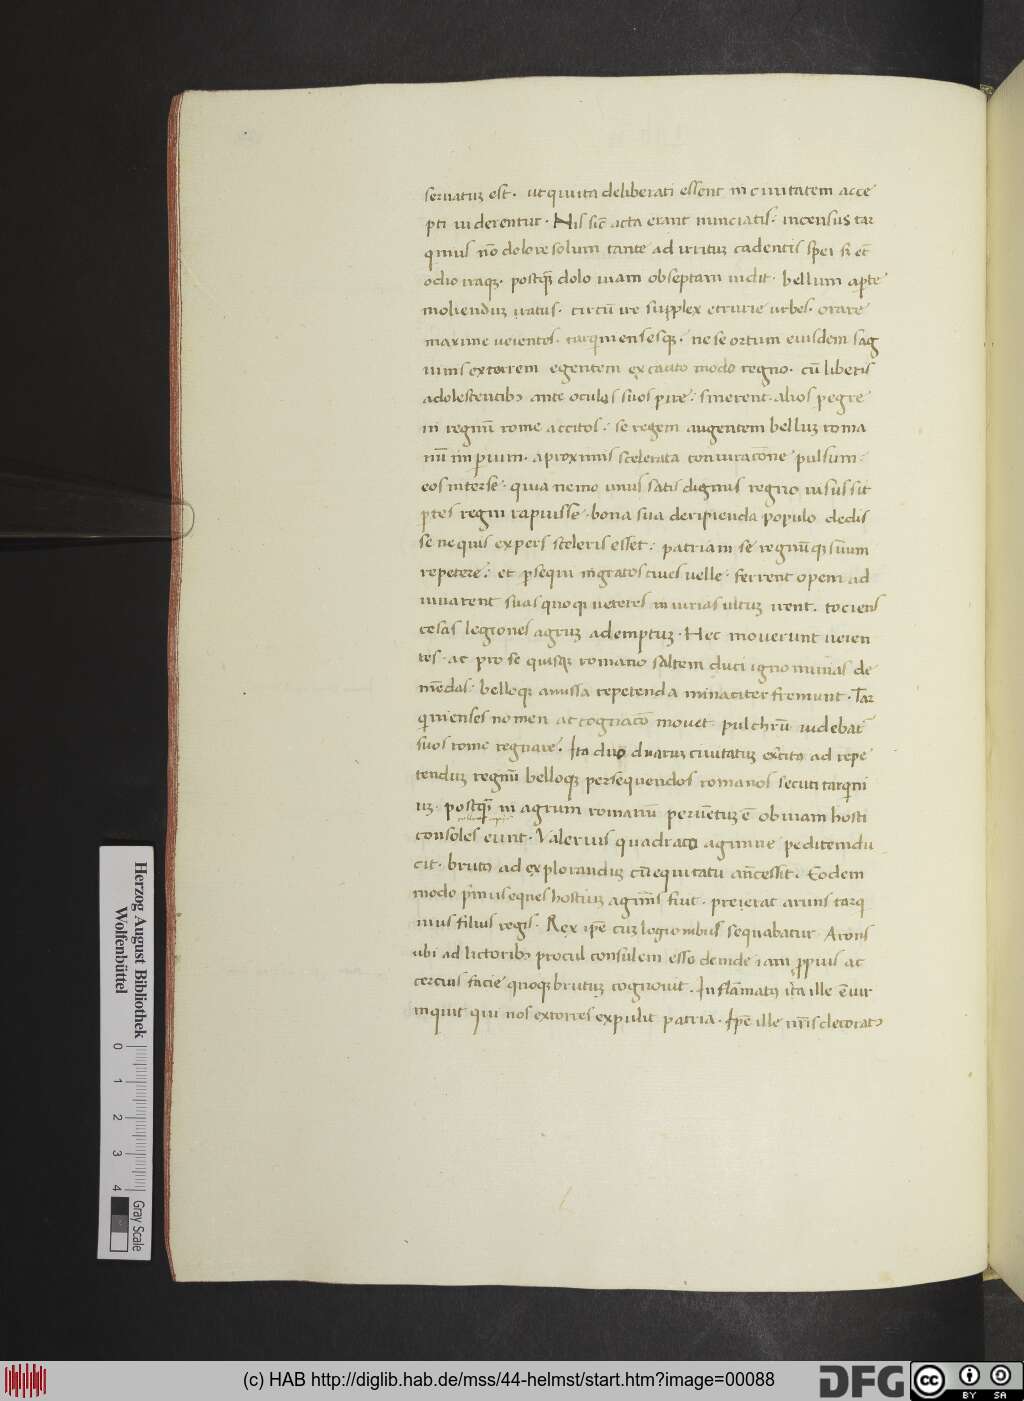 seruatuʒ est. ut quiuita deliberati essent in ciuitatem acce
pti uiderentur. His sic̄ acta erant nunciatis: incensus tar
qinius nō dolore solum tante ad irrituʒ cadentis spei sꝫ et̄
odio iraqʒ. postqʒ̄ dolo uiam obseptam uidit. bellum apte
moliendum ratus. circū ire supplex etrurie urbes. orare
maxime ueientes. tarqiniensesqʒ. ne se ortum eiusdem sag
uinis extorrem egentem ex tanto modo regno. cū liberis
adolescentibꝰ ante oculos suos pire: sinerent. alios pegre
in regnū rome accitos: se regem augentem belluʒ roma
nū imperium. a proximis scelerata coniuracōne pulsum:
eos inter se. quia nemo unus satis dignus regno uisus sit
ptes regni rapuisse. bona sua deripienda populo dedis
se ne quis expers sceleris esset: patriam se regnūqʒ suum
repetere: et psequi ingratos ciues uelle. ferrent opem ad
iuuarent suas quoqʒ ueteres iniurias ultuʒ irent. tociens
cesas legiones agruʒ ademptuʒ. Hec mouerunt ueien
tes. ac pro se quisqʒ romano saltem duci ignominias de
mēdas. belloqʒ amissa repetenda minaciter fremunt. Tar
qinienses nomen ac cognacō mouet pulchrū uidebat̄
suos rome regnare. Ita duo duaruʒ ciuitatuʒ exc̄itꝰ ad repe
tenduʒ regnū belloqʒ persequendos romanos secuti tarqini
uʒ. postqʒ̄ in agrum romanū peruētuʒ ē obuiam hosti
consoles eunt. Valerius quadrato agmine peditem du
cit. brutꝰ ad explorandum cū equitatu an̄cessit. Eodem
modo pimus eques hostiuʒ agmīs fuit. preierat aruns tarq
nius filius regis. Rex ipē cuʒ legionibus sequabatur. Arons
ubi ad lictoribꝰ procul consulem esse deinde iam ppius ac
cercius facie quoqʒ brutuʒ cognouit. Inflāmatꝰ ir̄a ille ē uir
inquit qui nos extorres expulit patria. Ipē ille nr̄is decoratꝰ
Herzog August Bibliothek
Wolfenbüttel
0 1 2 3 4 Gray Scale
(c) HAB http://diglib.hab.de/mss/44-helmst/start.htm?image=00088
DFG
cc BY SA